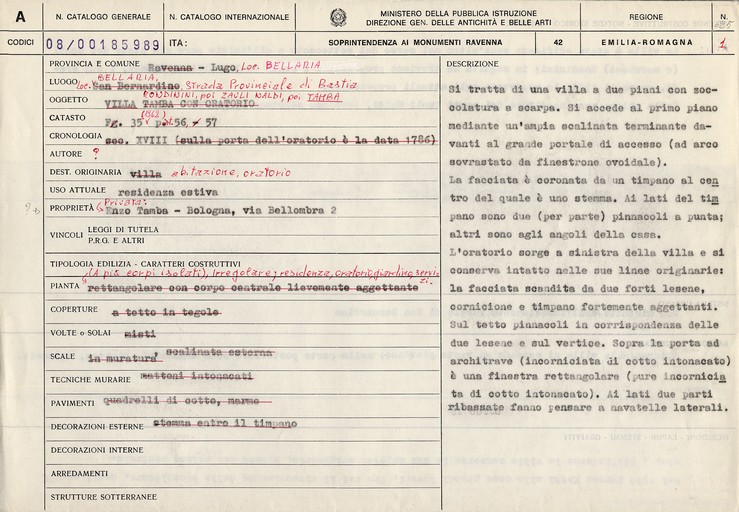 A
N. CATALOGO GENERALE
N. CATALOGO INTERNAZIONALE
MINISTERO DELLA PUBBLICA ISTRUZIONE
DIREZIONE GEN. DELLE ANTICHITÀ E BELLE ARTI
REGIONE
N.
CODICI
08/00185989
ITA:
SOPRINTENDENZA AI MONUMENTI RAVENNA
42
EMILIA-ROMAGNA
1
PROVINCIA E COMUNE Ravenna - Lugo, Loc. BELLARIA
BELLARIA,
LUOGO Loc. San Bernardino, Strada Provinciale di Bastia
RONDININI, poi ZAULI NALDI, poi TAMBA
OGGETTO VILLA TAMBA CON ORATORIO
CATASTO Fg. 35 p. 56, 57
CRONOLOGIA sec. XVIII (sulla porta dell'oratorio è la data 1786)
AUTORE ?
DEST. ORIGINARIA villa abitazione, oratorio
USO ATTUALE residenza estiva
Privata:
PROPRIETÀ Enzo Tamba - Bologna, via Bellombra 2
VINCOLI LEGGI DI TUTELA
P.R.G. E ALTRI
TIPOLOGIA EDILIZIA - CARATTERI COSTRUTTIVI
(A più corpi isolati), irregolare; residenza, oratorio, giardino, servizi.
PIANTA rettangolare con corpo centrale lievemente aggettante
COPERTURE a tetto in tegole
VOLTE o SOLAI misti
SCALE in muratura, scalinata esterna
TECNICHE MURARIE mattoni intonacati
PAVIMENTI quadrelli di cotto, marmo
DECORAZIONI ESTERNE stemma entro il timpano
DECORAZIONI INTERNE
ARREDAMENTI
STRUTTURE SOTTERRANEE
DESCRIZIONE
Si tratta di una villa a due piani con zoc-
colatura a scarpa. Si accede al primo piano
mediante un'ampia scalinata terminante da-
vanti al grande portale di accesso (ad arco
sovrastato da finestrone ovoidale).
La facciata è coronata da un timpano al cen
tro del quale è uno stemma. Ai lati del tim
pano sono due (per parte) pinnacoli a punta;
altri sono agli angoli della casa.
L'oratorio sorge a sinistra della villa e si
conserva intatto nelle sue linee originarie:
la facciata scandita da due forti lesene,
cornicione e timpano fortemente aggettanti.
Sul tetto pinnacoli in corrispondenza delle
due lesene e sul vertice. Sopra la porta ad
architrave (incorniciata di cotto intonacato)
è una finestra rettangolare (pure incornicia
ta di cotto intonacato). Ai lati due parti
ribassate fanno pensare a navatelle laterali.